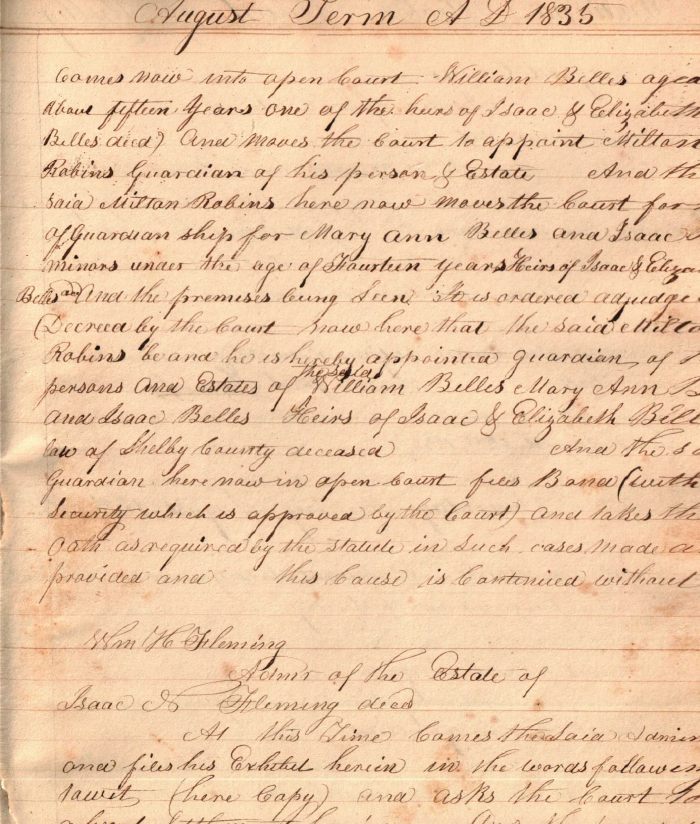 August Term A D 1835
Comes now into open Court William Belles aged
About fifteen Years one of the heirs of Isaac & Elizabeth
Belles decd) And moves the Court to appoint Milton
Robins Guardian of his person & Estate And the
said Milton Robins here now moves the Court for
of Guardian ship for Mary Ann Belles and Isaac
minors under the age of Fourteen years Heirs of Isaac & Eliza
Belles And the premises being seen It is ordered adjudge
(Decreed by the Court now here that the said Milto
Robins be and he is hereby appointed guardian of
the said
persons and Estates of William Belles Mary Ann B
and Isaac Belles Heirs of Isaac & Elizabeth Bell
law of Shelby County deceased And the sa
Guardian here now in open Court files Bond (with
security which is approved by the Court) and takes th
oath as required by the statute in such cases made a
provided and this Cause is Continued without
Wm H Fleming
Admr of the Estate of
Isaac N Fleming decd
At this Time Comes the said Admin
and files his Exhibit herein in the words followin
towit (here Copy) and asks the Court